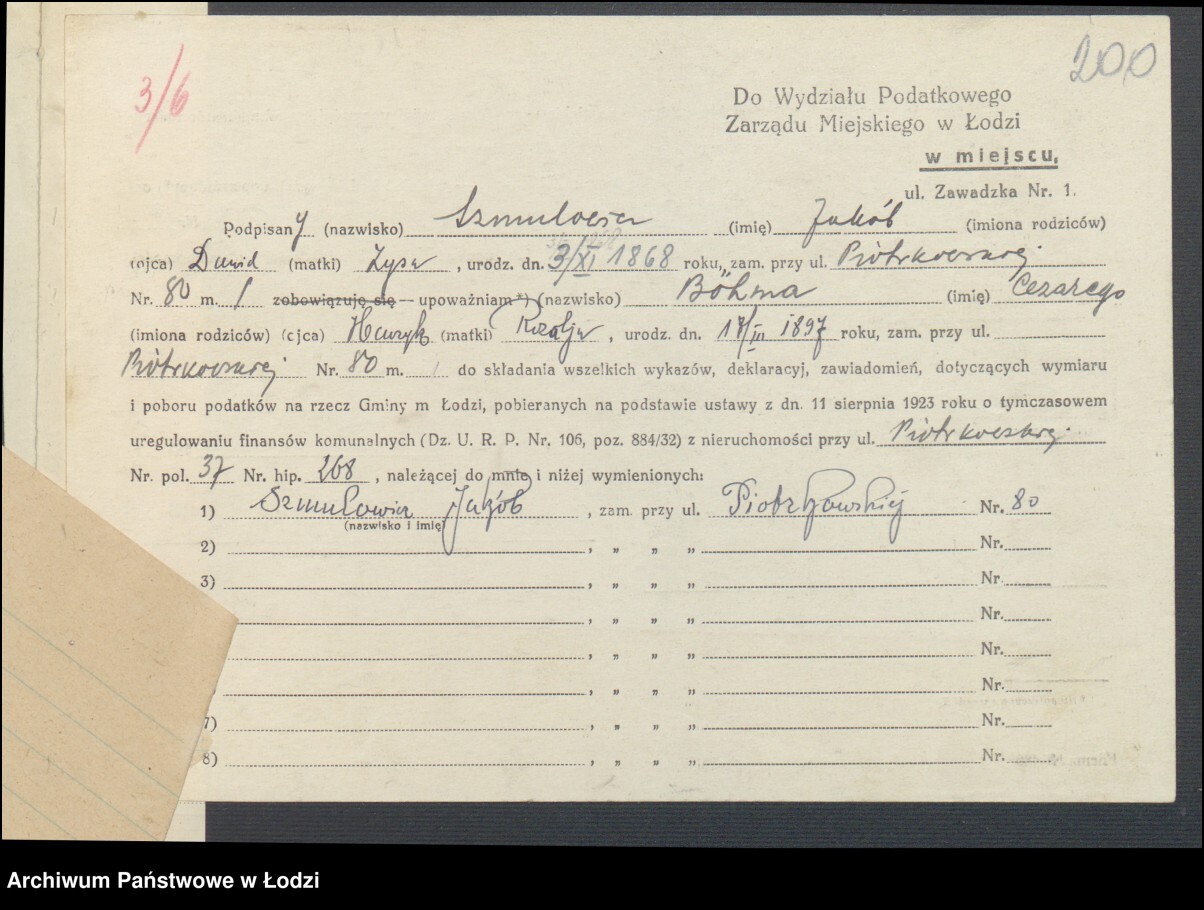 3/6
200
Do Wydziału Podatkowego
Zarządu Miejskiego w Łodzi
w miejscu,
ul. Zawadzka Nr. 1.
Podpisany (nazwisko) Szmulowicz (imię) Jakób (imiona rodziców)
(ojca) Dawid (matki) Zysa, urodz. dn. 3/XI 1868 roku, zam. przy ul. Piotrkowskiej
Nr. 80 m. 1 zobowiązuję się - upoważniam *) (nazwisko) Böhma (imię) Cezarego
(imiona rodziców) (ojca) Henryk (matki) Rozalja, urodz. dn. 17/III 1897 roku, zam. przy ul.
Piotrkowskiej Nr. 80 m. 1 do składania wszelkich wykazów, deklaracyj, zawiadomień, dotyczących wymiaru
i poboru podatków na rzecz Gminy m Łodzi, pobieranych na podstawie ustawy z dn. 11 sierpnia 1923 roku o tymczasowem
uregulowaniu finansów komunalnych (Dz. U. R. P. Nr. 106, poz. 884/32) z nieruchomości przy ul. Piotrkowskiej
Nr. pol. 37 Nr. hip. 268, należącej do mnie i niżej wymienionych:
1) Szmulowicz Jakób, zam. przy ul. Piotrkowskiej Nr. 80
(nazwisko i imię)
2) , „ „ „ Nr.
3) , „ „ „ Nr.
, „ „ „ Nr.
, „ „ „ Nr.
, „ „ „ Nr.
7) , „ „ „ Nr.
8) , „ „ „ Nr.
Archiwum Państwowe w Łodzi